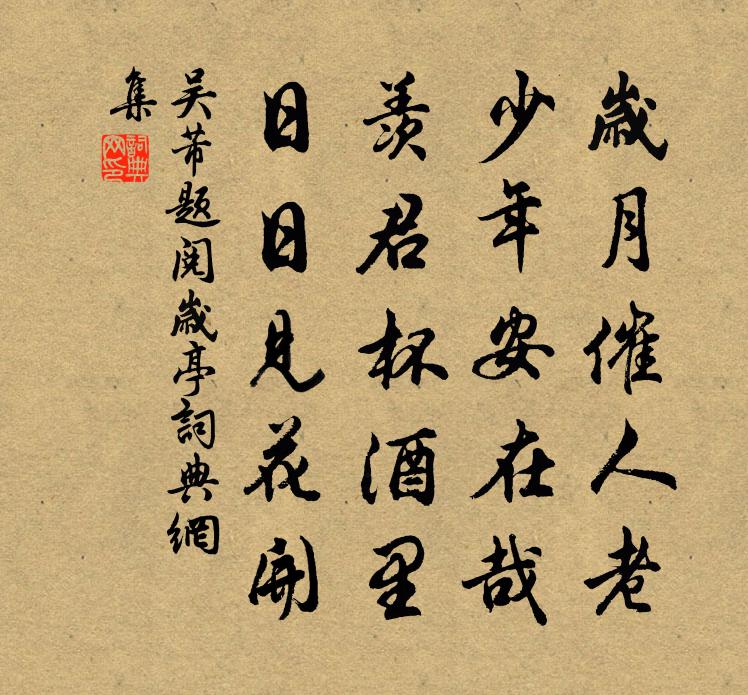 歲月催人老
少年安在哉
羨君杯酒里
日日見花開
吳芾題閱歲亭詞典網
集
詞典
网印